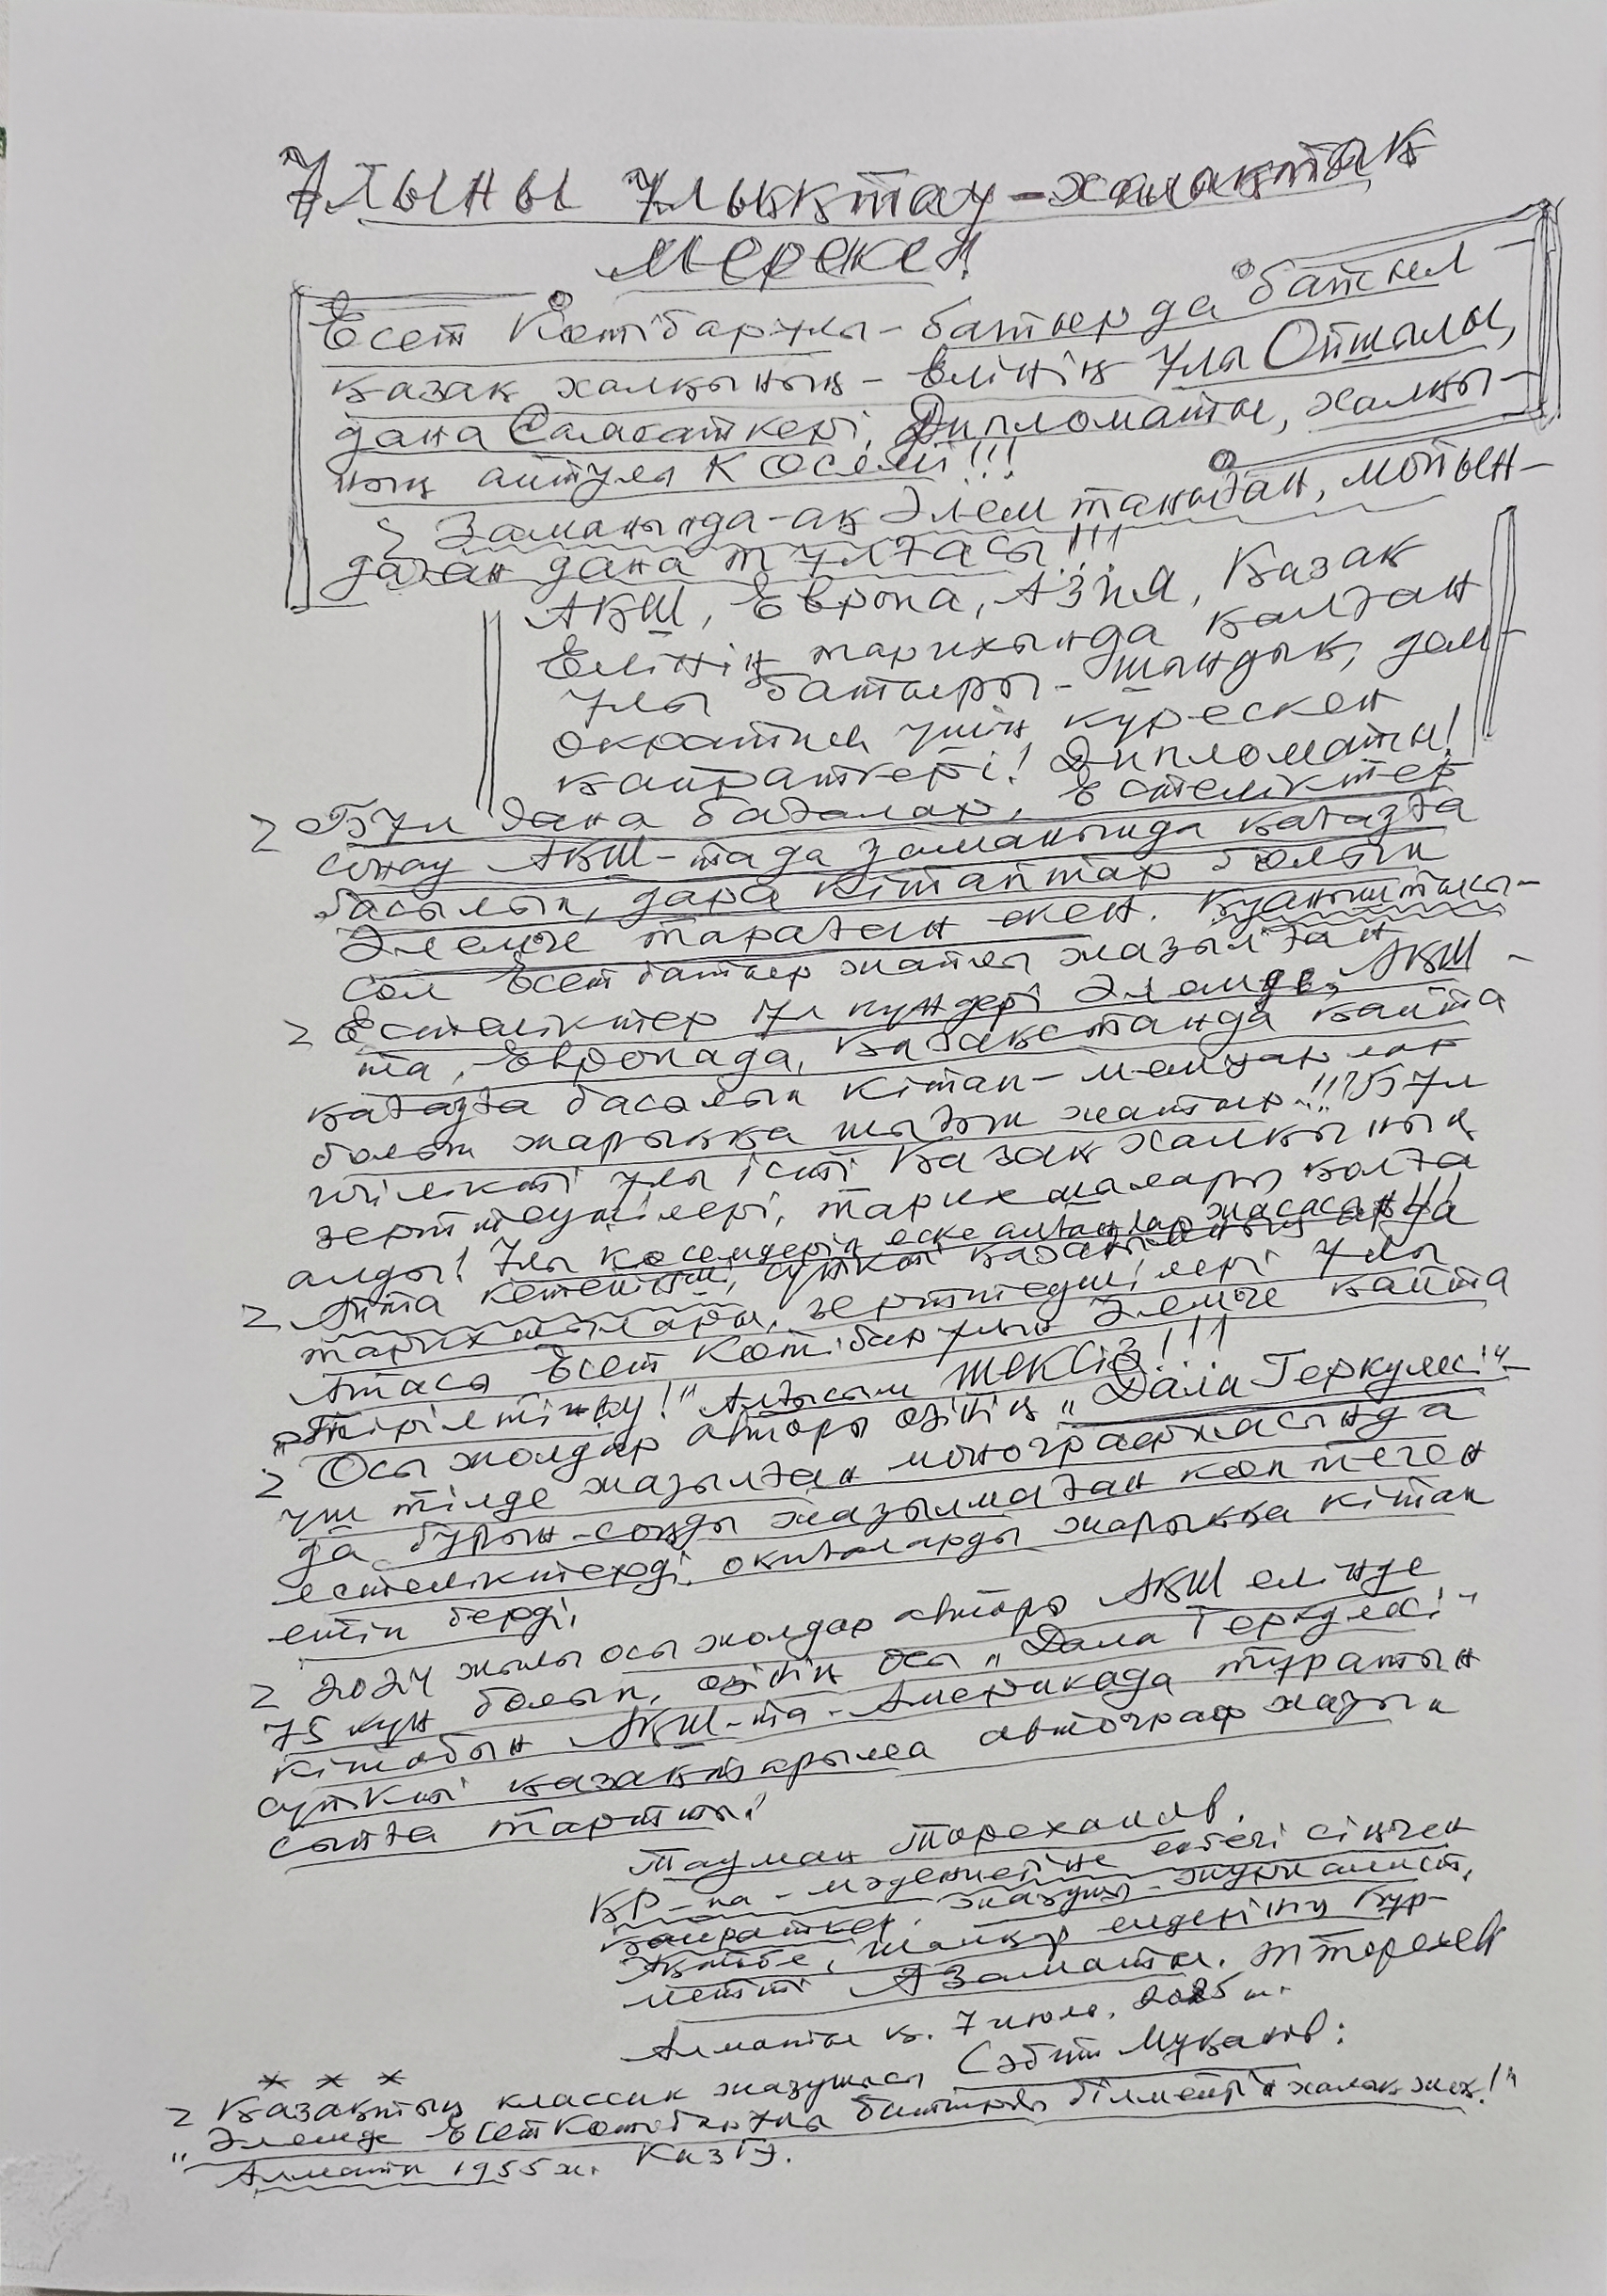 Ұлыны ұлықтау – халықтық
мереке!
Есет Көтібарұлы – батыр да батыл
қазақ халқының – Елінің Ұлы Ойшылы,
дана Саясаткері, Дипломаты, халқы-
ның айтулы Көсемі!!!
Заманында-ақ Әлем таныған, мойын-
даған дана тұлғасы!!!
АҚШ, Европа, Азия, Қазақ
Елінің тарихында қалған
ұлы батыры – шындық, дем-
ократия үшін күрескен
қайраткері! Дипломаты!
Бұл дана бағалар, Естеліктер
сонау АҚШ-та да заманында қағазға
басылып, дара кітаптар болып
Әлемге тараған екен. Қуаныштысы-
сол Есет батыр жайлы жазылған
Естеліктер бұл күндері Әлемде, АҚШ-
та, Европада, Қазақстанда қайта
қағазға басылып кітап –
болып жарыққа шығып жатыр!!! Бұл
игілікті ұлы істі Қазақ халқының
зерттеушілері, тарихшалары қолға
алды! Ұлы көсемдерін еске алғандар жасасын!!!
Айта кетейікші, сүйікті қазағымның
тарихшылары, зерттеушілері Ұлы
Атасы Есет Көтібарұлын Әлемге қайта
„Тірілтінду!" Алғысым ШЕКСІЗ!!!
Осы жолдар авторы өзінің „Дала Геркулесі"
үш тілде жазылған монографиясында
да бұрын-соңды жазылмаған көптеген
естеліктерді, оқиғаларды жарыққа кітап
етіп берді,
2024 жылы осы жолдар авторы АҚШ елінде
75 күн болып, өзінің осы „Дала Геркулесі"
кітабын АҚШ-та – Америкада тұратын
сүйікті қазақтарыма автограф жазып
сыйға тартты!
Тауман Төреханов,
ҚР-на – мәдениетіне еңбегі сіңген
қайраткер, жазушы – журналист,
Ақтөбе, Шалқар елдерінің Құр-
метті Азаматы. ТТөрехан
Алматы қ. 7 июль, 2025 ж.
* * *
Қазақтың классик жазушысы Сәбит Мұқанов:
„Әлемде Есет Көтебарұлы батырды білмейтін халық жоқ!"
Алматы 1955 ж. КазГУ.